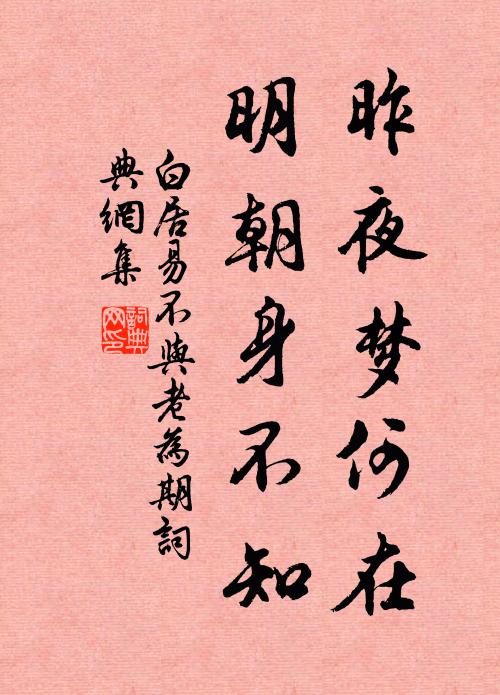 昨夜梦何在
明朝身不知
白居易不與老為期詞
典網集
詞典
网印